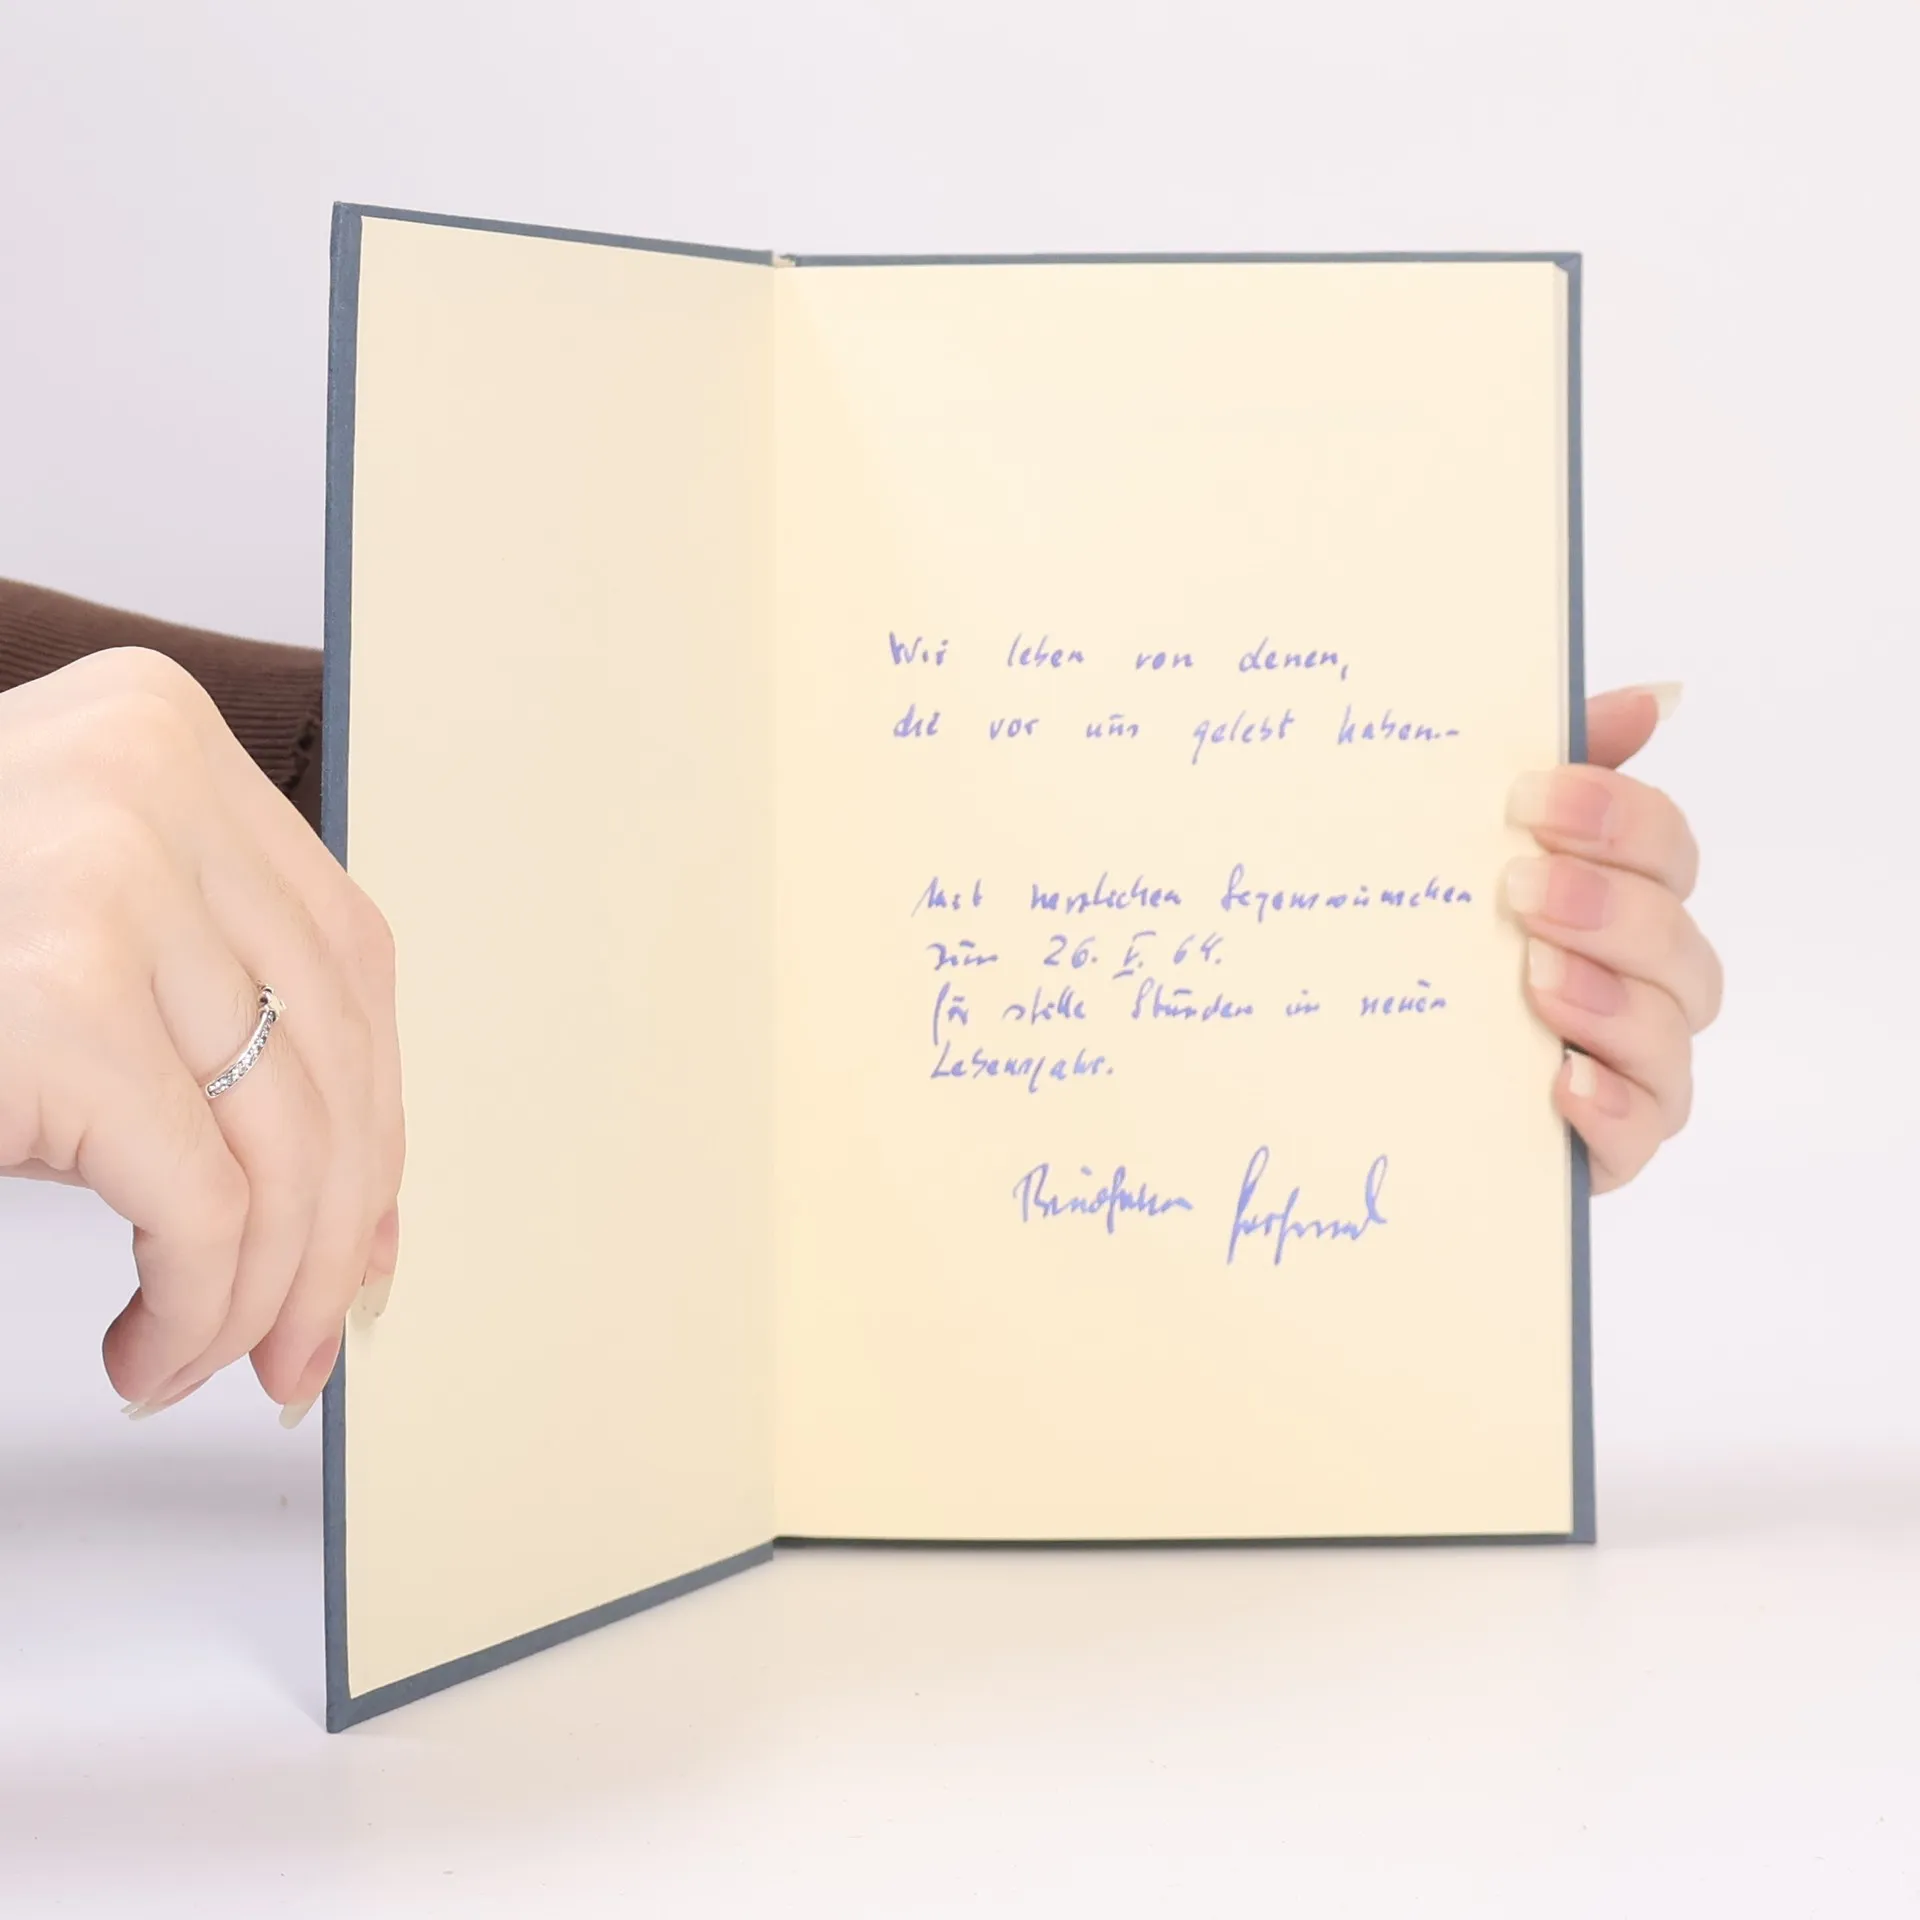 Wir leben von denen,
die vor uns gelebt haben.-
Mit herzlichen Segenswünschen
zum 26. V. 64.
für stille Stunden im neuen
Lebensjahr.